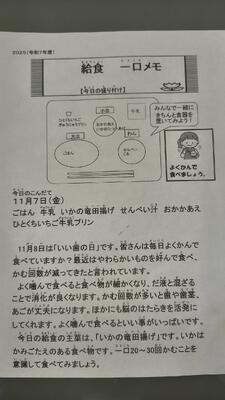 2025(令和7年度)
給食 一口メモ
【今日の盛り付け】
ひとくちいちご
ぎゅうにゅうプリン
小皿
おかかあえ
いかのたつたあげ
牛乳
お皿
ごはん
わん
せんべい
じる
みんなで一緒に
きちんと食器を
置いてみよう!
よくかんで
食べましょう。
今日のこんだて
11月7日(金)
ごはん 牛乳 いかの竜田揚げ せんべい汁 おかかあえ
ひとくちいちご牛乳プリン
11月8日は「いい歯の日」です。皆さんは毎日よくかんで
食べていますか?最近はやわらかいものを好んで食べ、
かむ回数が減ってきたと言われています。
よく噛んで食べると食べ物が細かくなり、だ液と混ざる
ことで消化が良くなります。かむ回数が多いと歯や歯茎、
あごが丈夫になります。ほかにも脳のはたらきを活発に
してくれます。よく噛んで食べるといい事がいっぱいです。
今日の給食の主菜は、「いかの竜田揚げ」です。いかは
かみごたえのある食べ物です。一口20~30回かむことを
意識して食べてみましょう。